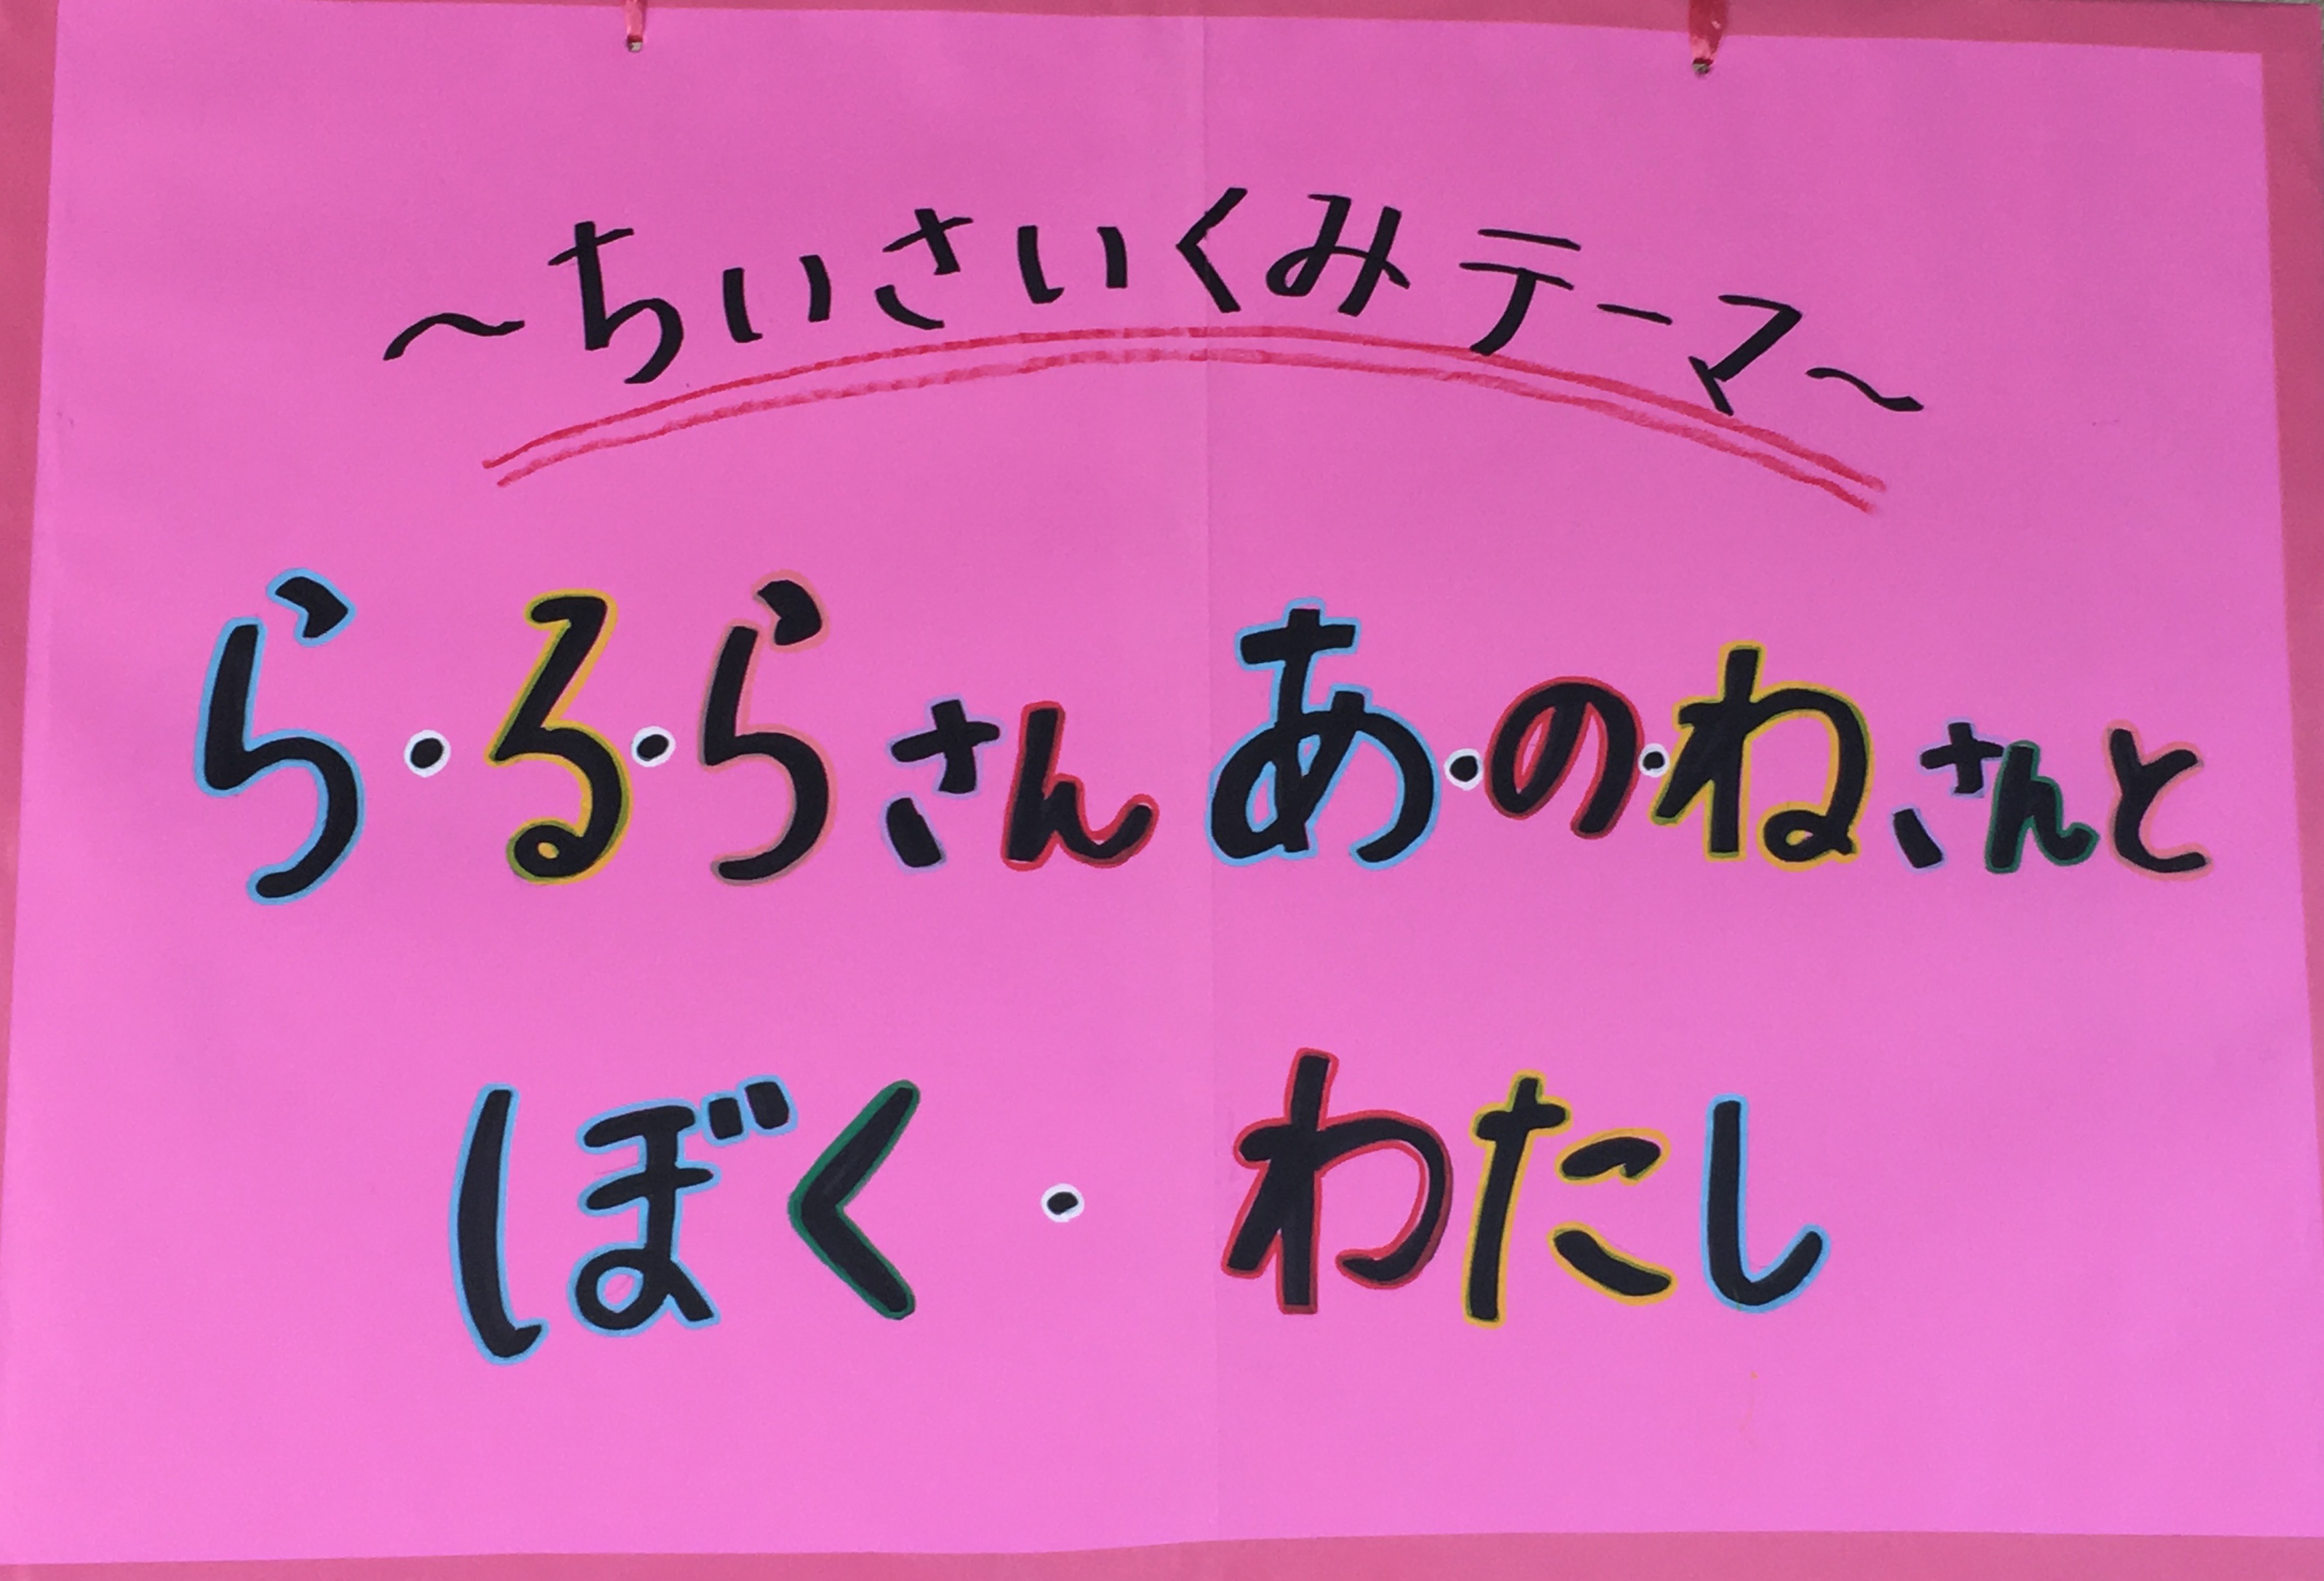 ～ちいさいくみテーマ～
ら・る・らさん あ・の・ねさんと
ぼく・わたし